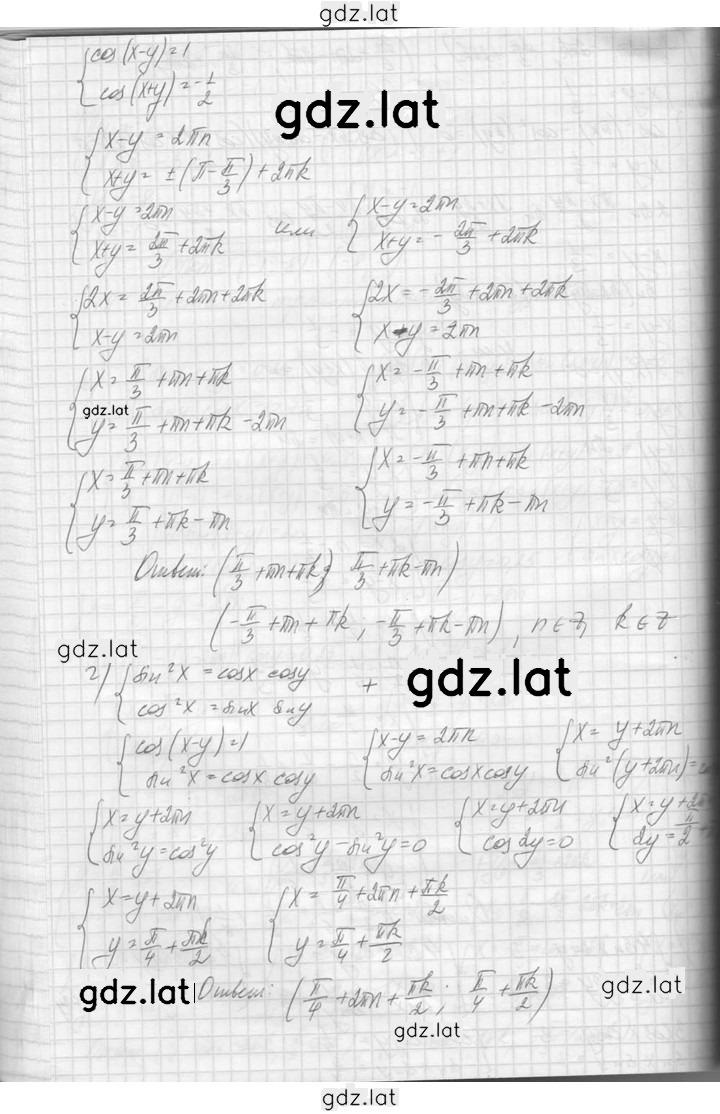 gdz.lat
{cos(x-y)=1
cos(x+y)=-1/2
gdz.lat
{x-y=2πn
x+y=±(π-π/3)+2πk
{x-y=2πn
x+y=2π/3+2πk
или
{x-y=2πn
x+y=-2π/3+2πk
{2x=2π/3+2πn+2πk
x-y=2πn
{2x=-2π/3+2πn+2πk
x-y=2πn
{x=π/3+πn+πk
gdz.lat
y=π/3+πn+πk-2πn
{x=-π/3+πn+πk
y=-π/3+πn+πk-2πn
{x=π/3+πn+πk
y=π/3+πk-πn
{x=-π/3+πn+πk
y=-π/3+πk-πn
Ответ: (π/3+πn+πk; π/3+πk-πn)
(-π/3+πn+πk, -π/3+πk-πn), n∈z, k∈z
gdz.lat
2) {sin²x=cosx cosy
cos²x=sinx siny
+
gdz.lat
{cos(x-y)=1
sin²x=cosx cosy
{x-y=2πn
sin²x=cosxcosy
{x=y+2πn
sin²(y+2πn)=
{x=y+2πn
sin²y=cos²y
{x=y+2πn
cos²y-sin²y=0
{x=y+2πn
cos2y=0
{x=y+2π
2y=π/2
{x=y+2πn
y=π/4+πk/2
{x=π/4+2πn+πk/2
y=π/4+πk/2
gdz.lat
Ответ: (π/4+2πn+πk/2; π/4+πk/2)
gdz.lat
gdz.lat
gdz.lat